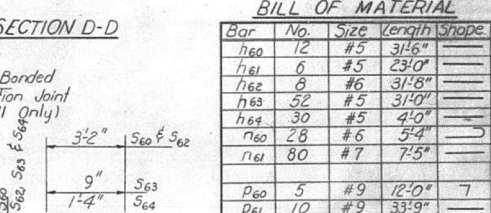 SECTION D-D
Bonded
tion Joint
Only)
3'-2" S60 & S62
S62, S63 & S64
9" S63
1'-4" S64
BILL OF MATERIAL
Bar No. Size Length Shape
h60 12 #5 31'-6"
h61 6 #5 23'-0"
h62 8 #6 31'-8"
h63 52 #5 31'-0"
h64 30 #5 4'-0"
n60 28 #6 5'-4"
n61 80 #7 7'-5"
p60 5 #9 12'-0"
p61 10 #9 33'-9"